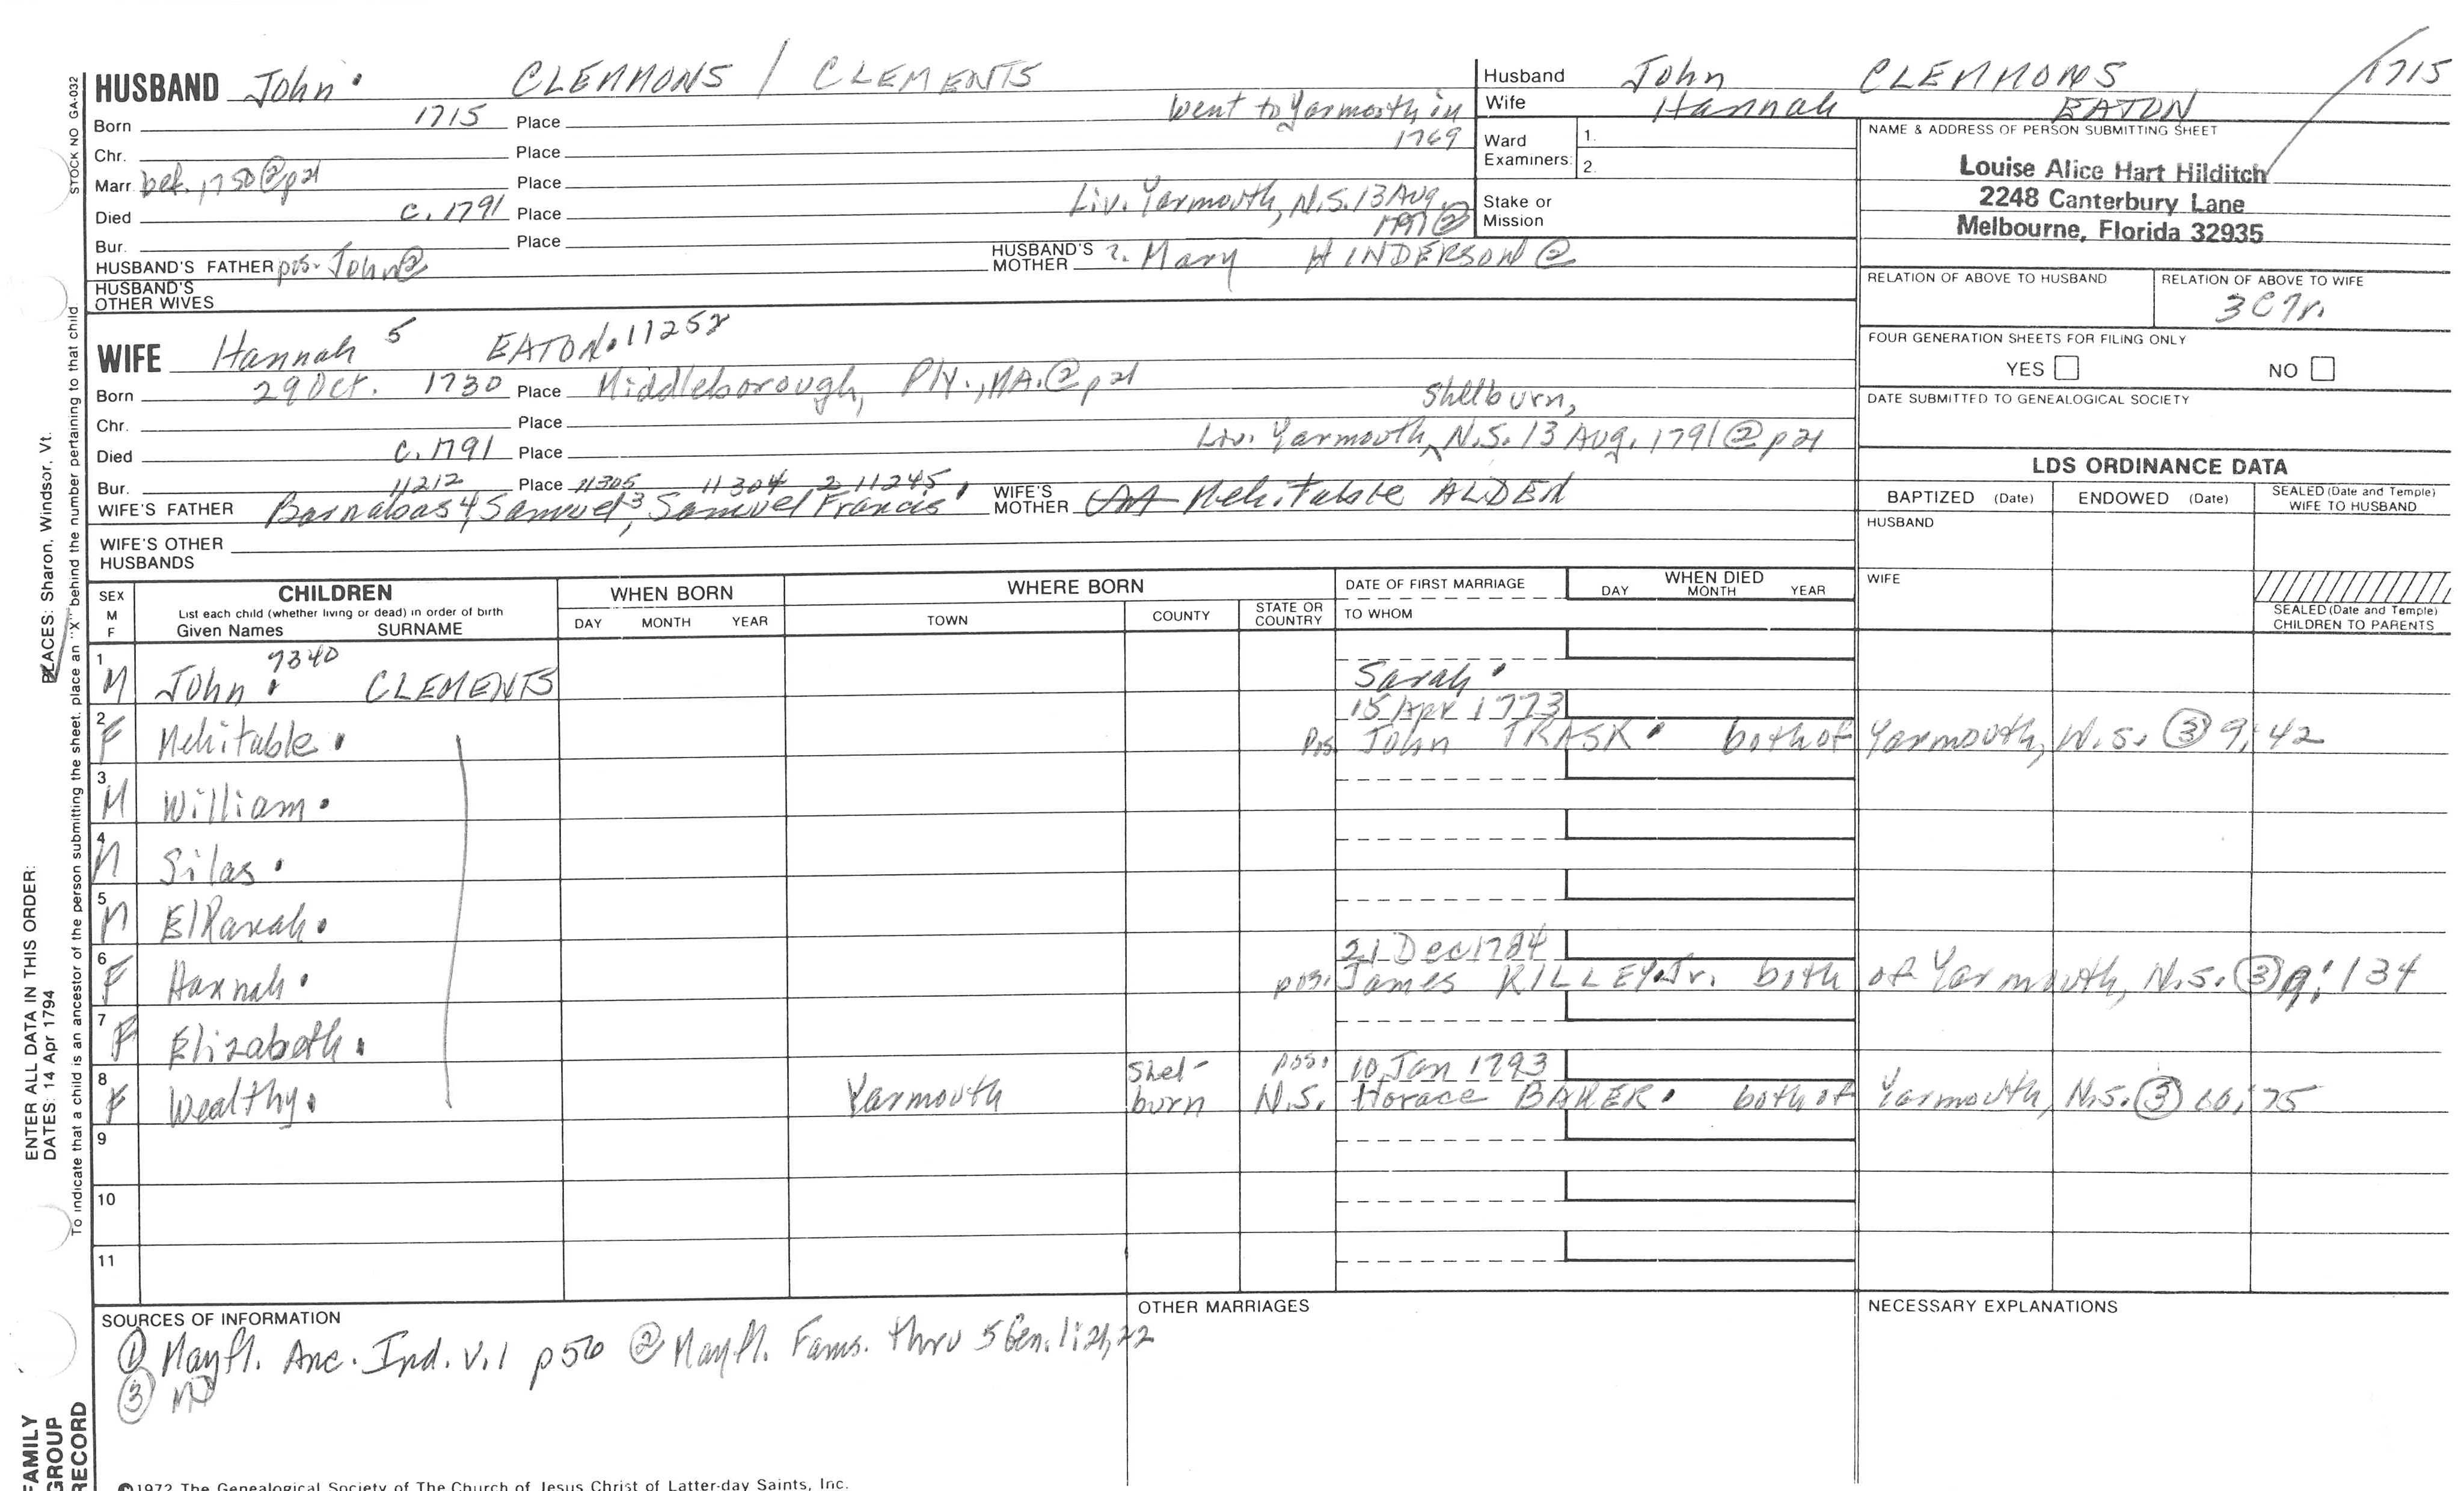 HUSBAND John CLEMMONS / CLEMENTS
Born 1715 Place Went to Yarmouth in
Chr. Place 1769
Marr. bef. 1750 @ p21 Place
Died c. 1791 Place Liv. Yarmouth, N.S. 13 Aug.
1791 ②
Bur. Place
HUSBAND'S FATHER pos. John ② HUSBAND'S MOTHER ?. Mary HINDERSON ②
HUSBAND'S OTHER WIVES
WIFE Hannah 5 EATON. 11258
Born 29 Oct. 1730 Place Middleborough, Ply., MA. @ p21
Chr. Place Shelburn,
Died c. 1791 Place Liv. Yarmouth, N.S. 13 Aug. 1791 ② p21
Bur. 11212 Place 11305 11304 2 11245
WIFE'S FATHER Barnabas 4 Samuel 3, Samuel Francis 1 WIFE'S MOTHER Mehitable ALDEN
WIFE'S OTHER HUSBANDS
Husband John CLEMMONS 1715
Wife Hannah EATON
Ward Examiners: 1.
2.
Stake or Mission
NAME & ADDRESS OF PERSON SUBMITTING SHEET
Louise Alice Hart Hilditch
2248 Canterbury Lane
Melbourne, Florida 32935
RELATION OF ABOVE TO HUSBAND RELATION OF ABOVE TO WIFE
3C7r.
FOUR GENERATION SHEETS FOR FILING ONLY
YES NO
DATE SUBMITTED TO GENEALOGICAL SOCIETY
LDS ORDINANCE DATA
BAPTIZED (Date) ENDOWED (Date) SEALED (Date and Temple) WIFE TO HUSBAND
HUSBAND
WIFE
SEALED (Date and Temple) CHILDREN TO PARENTS
SEX M F
CHILDREN
List each child (whether living or dead) in order of birth
Given Names SURNAME
WHEN BORN
DAY MONTH YEAR
WHERE BORN
TOWN COUNTY STATE OR COUNTRY
DATE OF FIRST MARRIAGE
TO WHOM
WHEN DIED
DAY MONTH YEAR
1 M John 7340 CLEMENTS Sarah
15 Apr 1773
2 F Mehitable Pos. John TRASK. both of Yarmouth, N.S. ③ 9:42
3 M William
4 M Silas
5 M Elkanah
21 Dec 1784
6 F Hannah pos. James KILLEY Jr. both of Yarmouth, N.S. ③ 9:134
7 F Elizabeth
Shel- pos. 10 Jan 1793
8 F Wealthy Yarmouth burn N.S. Horace BAKER. both of Yarmouth, N.S. ③ 10:75
9
10
11
SOURCES OF INFORMATION
① Mayfl. Anc. Ind. v.1 p56 ② Mayfl. Fams. thru 5 Gen. 1:21,22
③
OTHER MARRIAGES
NECESSARY EXPLANATIONS
©1972 The Genealogical Society of The Church of Jesus Christ of Latter-day Saints, Inc.
STOCK NO GA-032
To indicate that a child is an ancestor of the person submitting the sheet, place an "X" behind the number pertaining to that child
PLACES: Sharon, Windsor, Vt.
ENTER ALL DATA IN THIS ORDER:
DATES: 14 Apr 1794
FAMILY GROUP RECORD